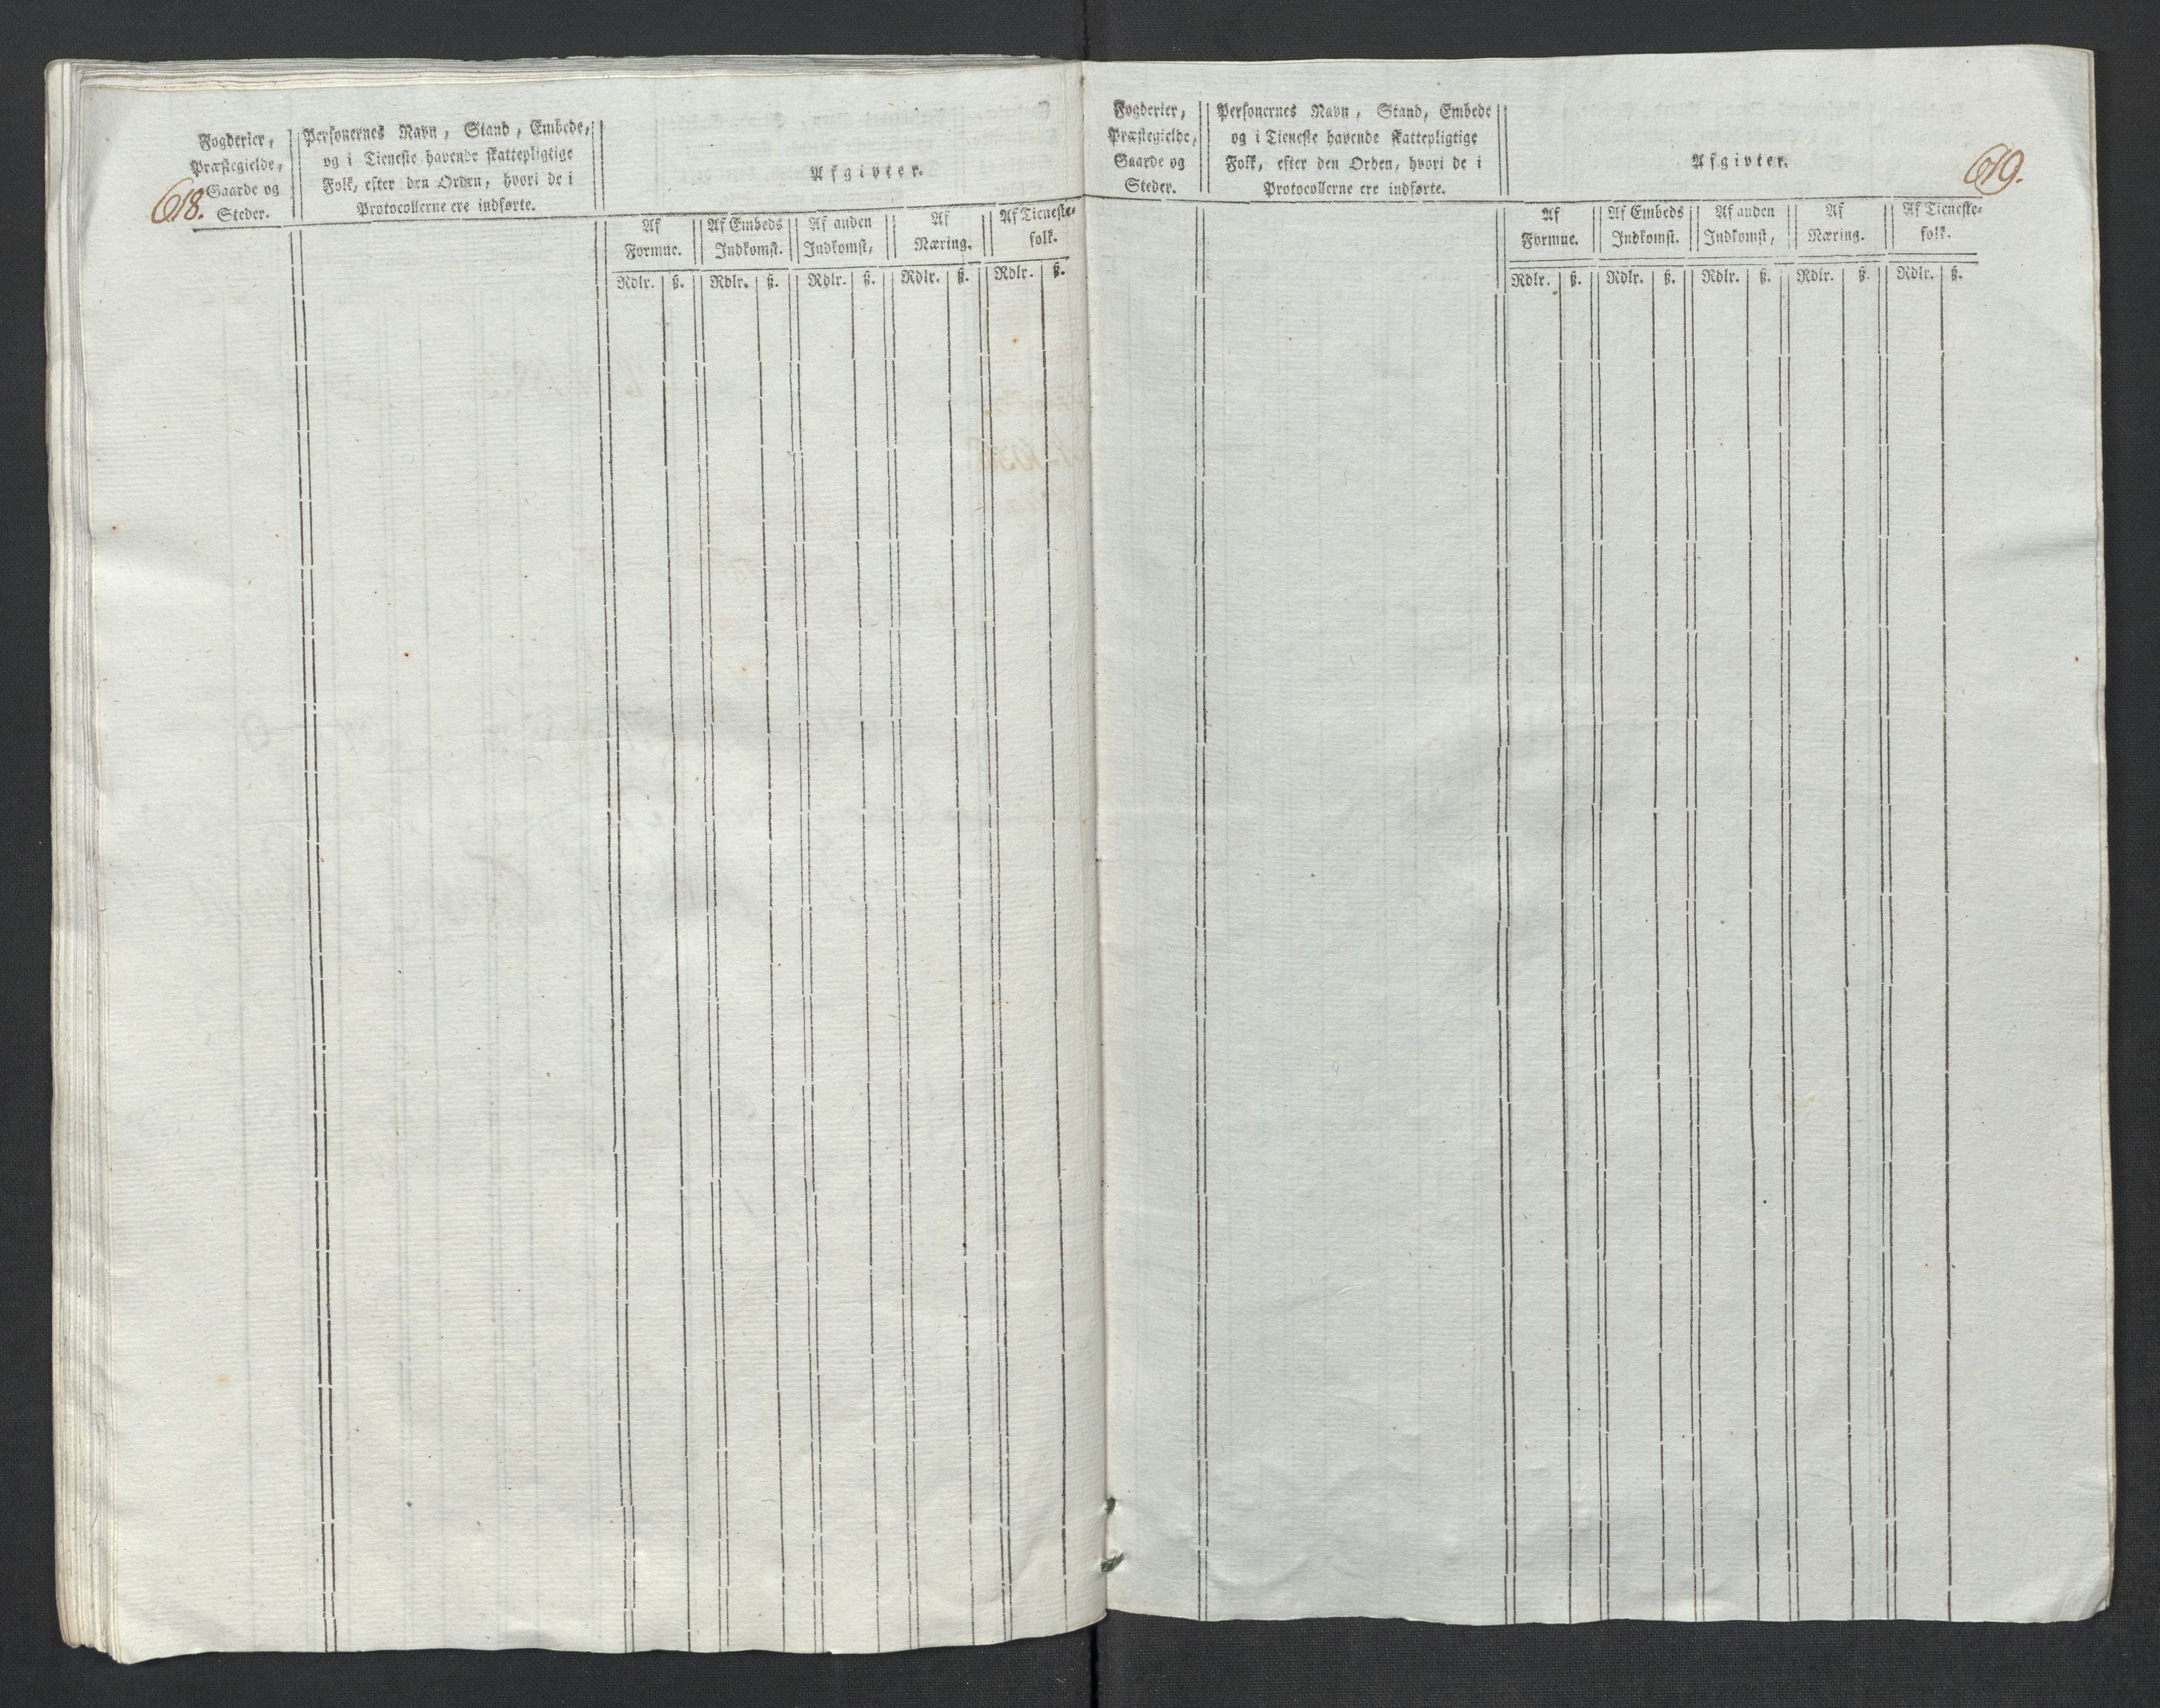 618.
Fogderier,
Præstegielde,
Gaarde og
Steder.
Personernes Navn, Stand, Embede,
og i Tieneste havende skattepligtige
Folk, efter den Orden, hvori de i
Protocollerne ere indførte.
Afgivter.
Af
Formue.
Af Embeds
Indkomst.
Af anden
Indkomst,
Af
Næring.
Af Tieneste-
folk.
Rdlr. ß. Rdlr. ß. Rdlr. ß. Rdlr. ß. Rdlr. ß.
Fogderier,
Præstegielde,
Gaarde og
Steder.
Personernes Navn, Stand, Embede
og i Tieneste havende skattepligtige
Folk, efter den Orden, hvori de i
Protocollerne ere indførte.
Afgivter.
619.
Af
Formue.
Af Embeds
Indkomst.
Af anden
Indkomst,
Af
Næring.
Af Tieneste-
folk.
Rdlr. ß. Rdlr. ß. Rdlr. ß. Rdlr. ß. Rdlr. ß.